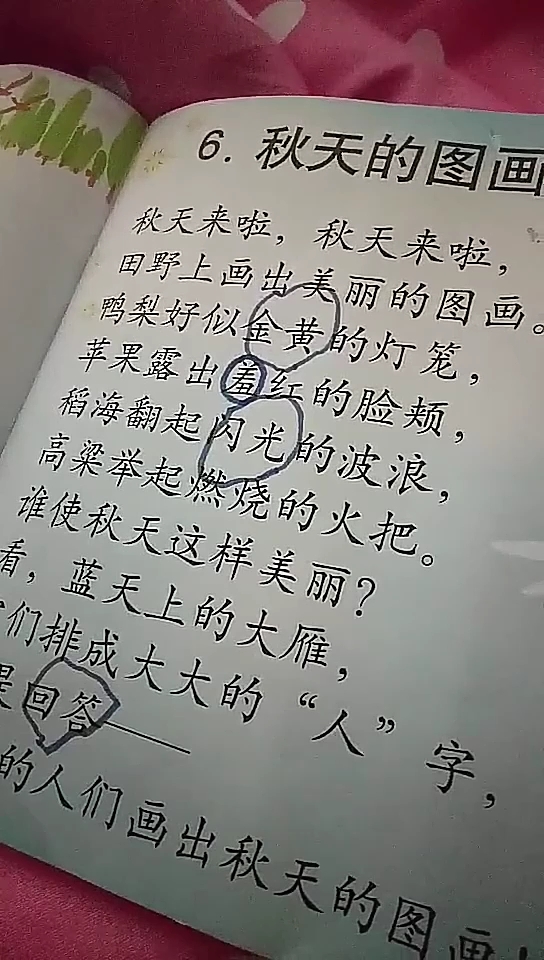 6. 秋天的图画
秋天来啦，秋天来啦，
田野上画出美丽的图画。
鸭梨好似金黄的灯笼，
苹果露出羞红的脸颊，
稻海翻起闪光的波浪，
高粱举起燃烧的火把。
谁使秋天这样美丽？
看，蓝天上的大雁，
们排成大大的“人”字，
回答——
的人们画出秋天的图画